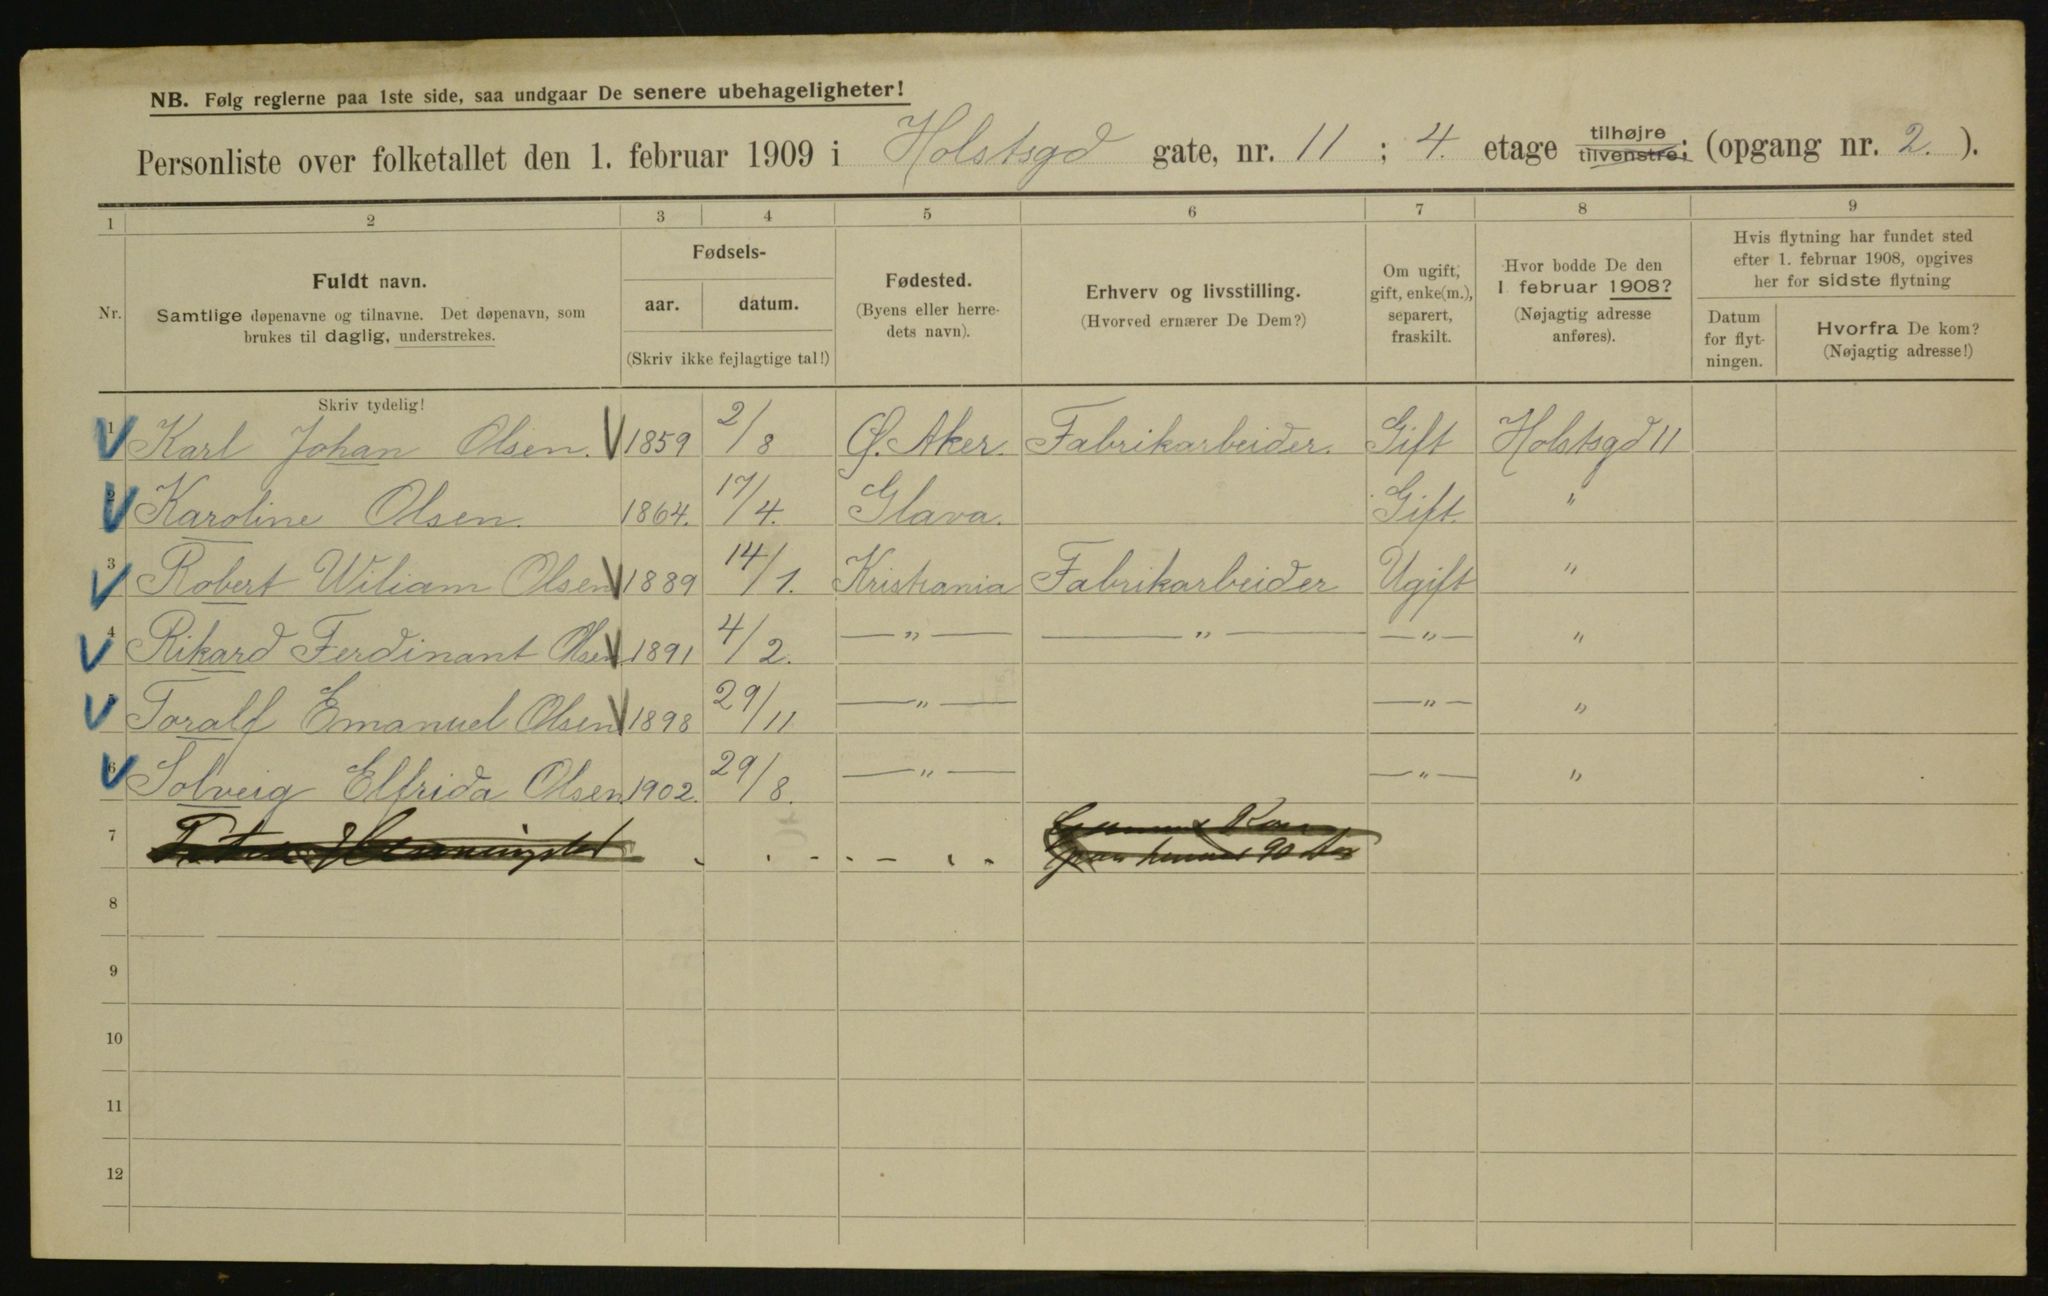 NB. Følg reglerne paa 1ste side, saa undgaar De senere ubehageligheter!
Personliste over folketallet den 1. februar 1909 i Holstsgd gate, nr. 11 ; 4. etage tilhøjre tilvenstre; (opgang nr. 2. ).
1 2 3 4 5 6 7 8 9
Nr.
Fuldt navn.
Samtlige døpenavne og tilnavne. Det døpenavn, som
brukes til daglig, understrekes.
Fødsels-
aar. datum.
(Skriv ikke fejlagtige tal!)
Fødested.
(Byens eller herre-
dets navn).
Erhverv og livsstilling.
(Hvorved ernærer De Dem?)
Om ugift,
gift, enke(m.),
separert,
fraskilt.
Hvor bodde De den
1. februar 1908?
(Nøjagtig adresse
anføres).
Hvis flytning har fundet sted
efter 1. februar 1908, opgives
her for sidste flytning
Datum
for flyt-
ningen.
Hvorfra De kom?
(Nøjagtig adresse!)
Skriv tydelig!
1 Karl Johan Olsen. 1859 2/8 Ø. Aker. Fabrikarbeider. Gift Holstsgd 11
2 Karoline Olsen. 1864. 17/4. Glava. Gift. "
3 Robert Wiliam Olsen 1889 14/1. Kristiania Fabrikarbeider Ugift "
4 Rikard Ferdinant Olsen 1891 4/2. — " — — " — — " — "
5 Toralf Emanuel Olsen 1898 29/11 — " — — " — "
6 Solveig Elfrida Olsen 1902. 29/8. — " — — " — "
7
8
9
10
11
12